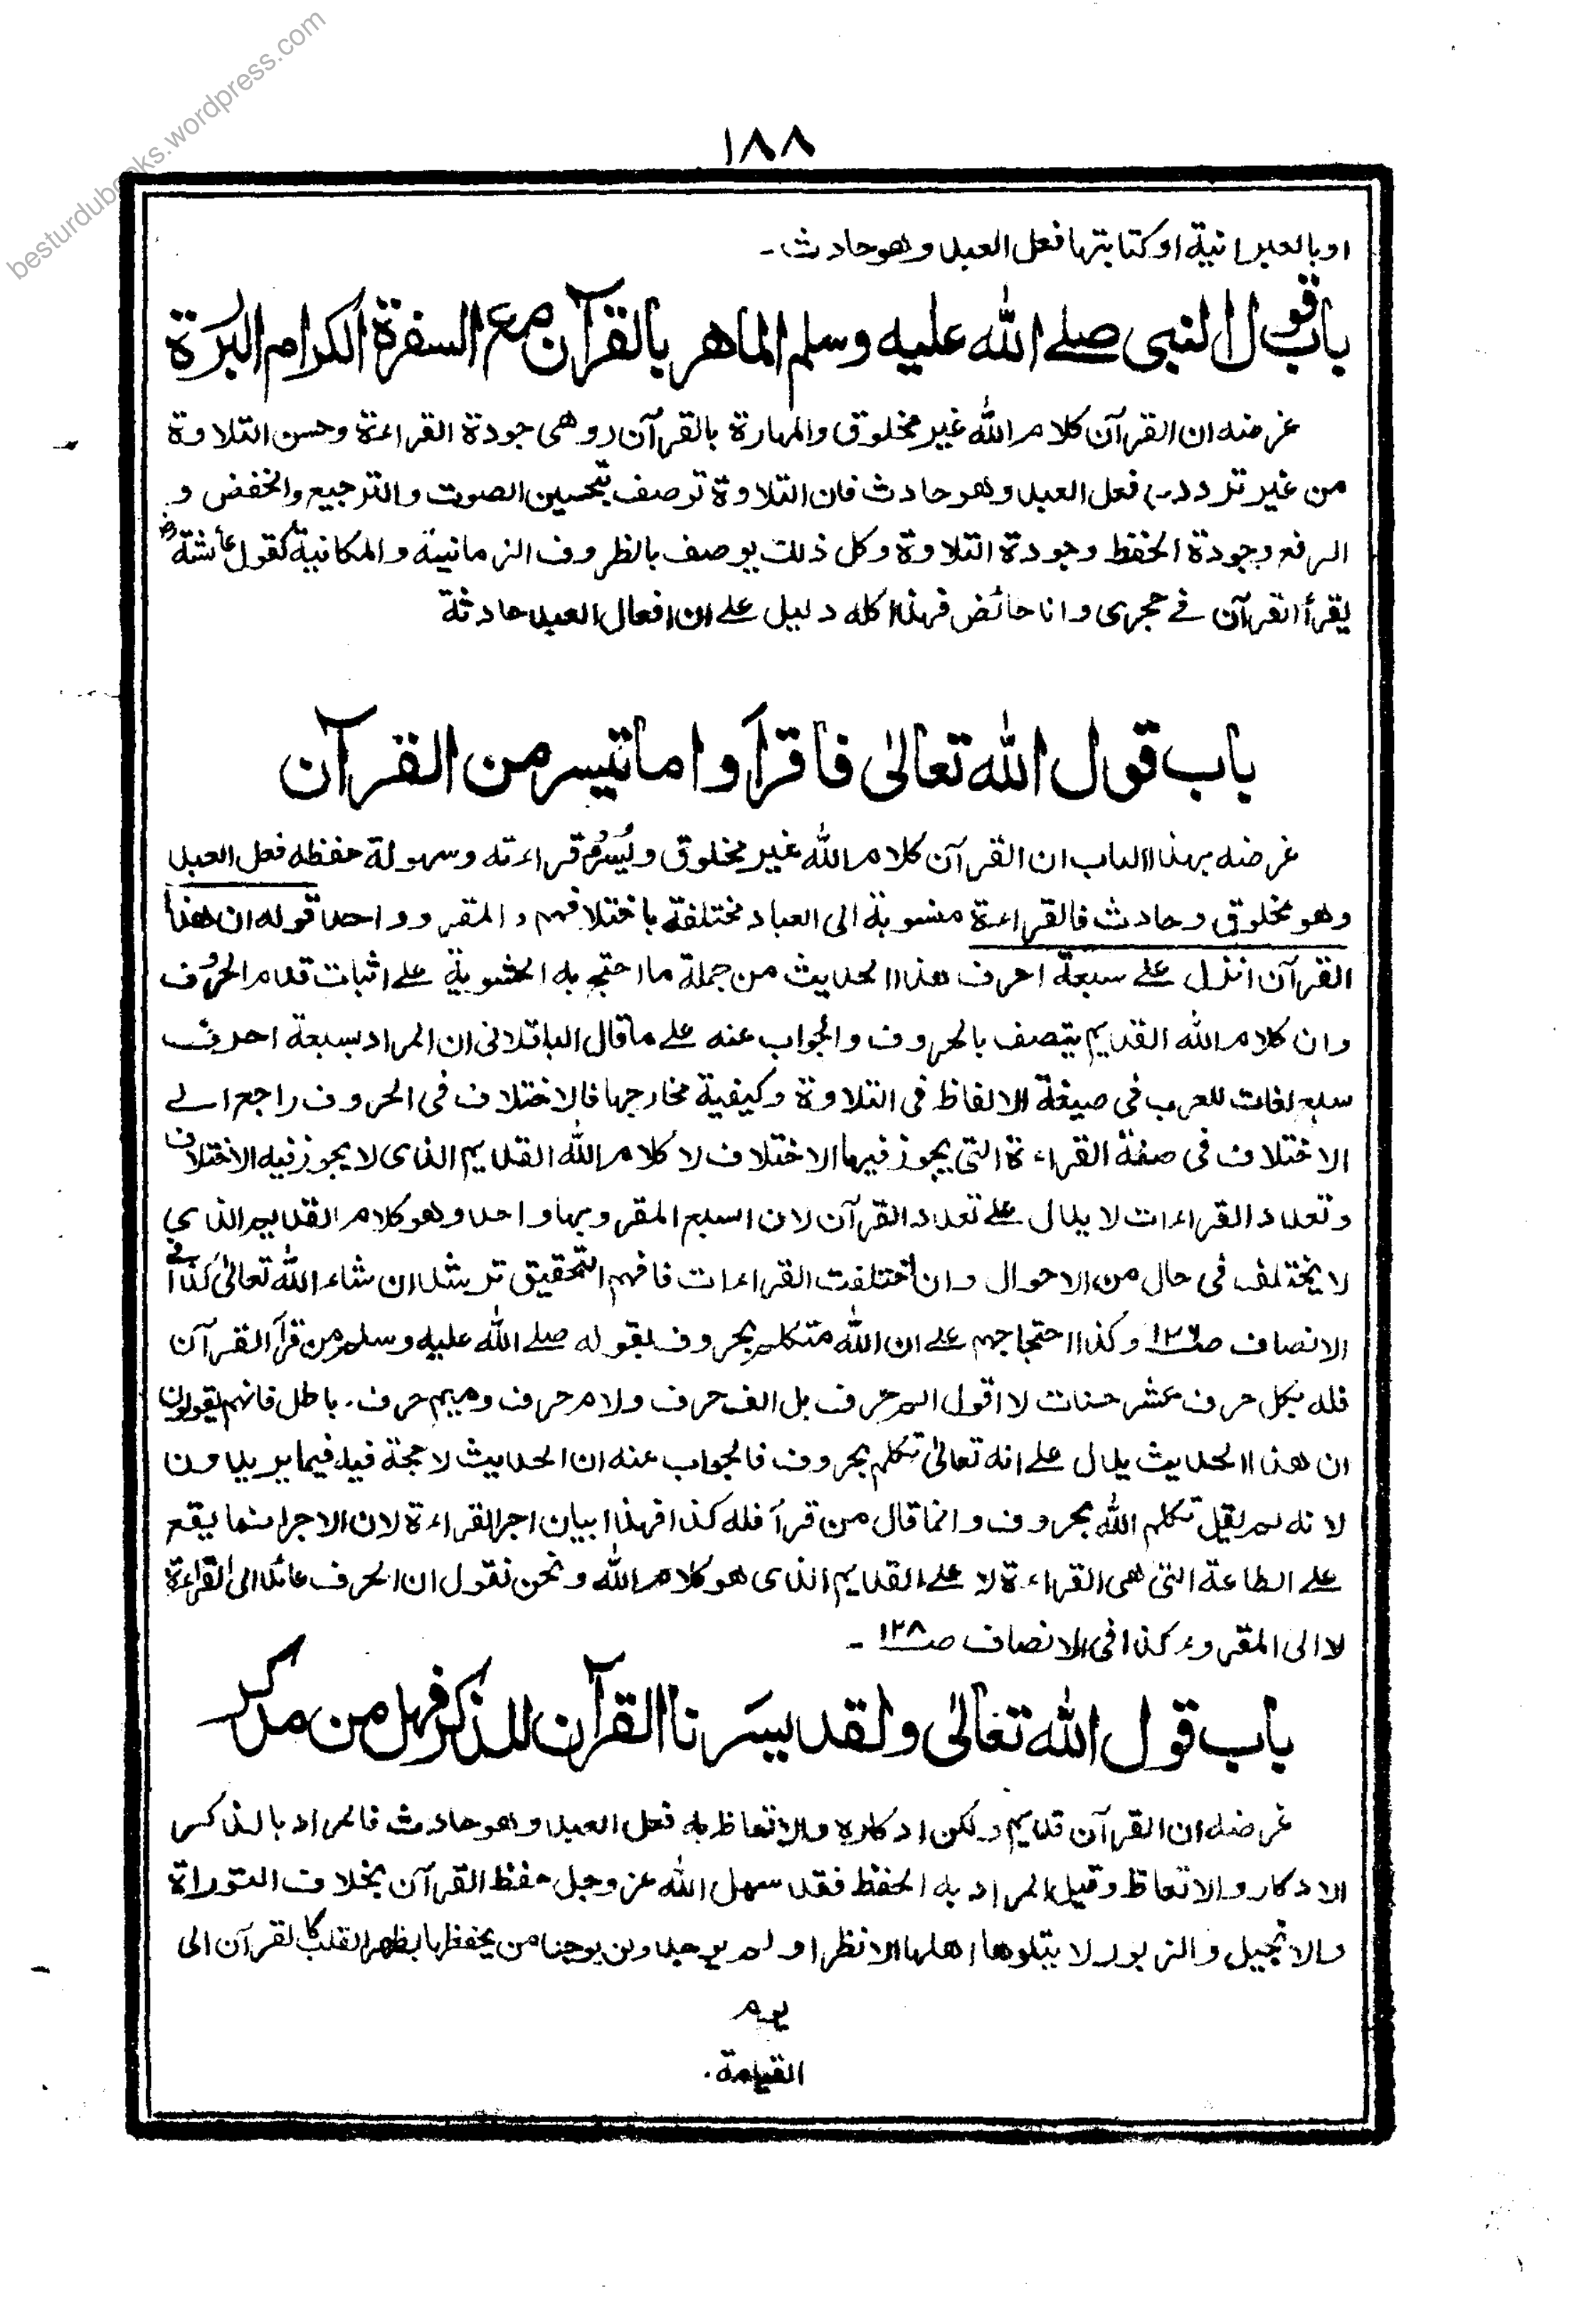 besturdubooks.wordpress.com
١٨٨
او بالعبرانية او كتابتها فعل العبد وهو حادث۔
باب قول النبى صلے الله عليه وسلم الماهر بالقرآن مع السفرة الكرام البَرَرة
غرضه ان القرآن كلام الله غير مخلوق والمهارة بالقرآن (وهى جودة القراءة وحسن التلاوة
من غير تردد) فعل العبد وهو حادث فان التلاوة توصف بتحسين الصوت والترجيع والخفض و
الرفع وجودة الحفظ وجودة التلاوة وكل ذلك يوصف بالظروف الزمانية والمكانية كقول عائشة رض
يقرأ القرآن فے حجرى وانا حائض فهذا كله دليل علے ان افعال العبد حادثة
باب قول الله تعالىٰ فاقرأوا ما تيسر من القرآن
غرضه بهذا الباب ان القرآن كلام الله غير مخلوق ويُسْرُ قراءته وسهولة حفظه فعل العبد
وهو مخلوق وحادث فالقراءة منسوبة الى العباد مختلفة باختلافهم و المقروء واحد قوله ان هذا
القرآن انزل علے سبعة احرف هذا الحديث من جملة ما احتج به الحشوية علے اثبات قدم الحروف
وان كلام الله القديم يتصف بالحروف والجواب عنه علے ما قال الباقلانى ان المراد بسبعة احرف
سبع لغات للعرب فى صيغة الالفاظ فى التلاوة وكيفية مخارجها فالاختلاف فى الحروف راجع الے
الاختلاف فى صفة القراءة التى يجوز فيها الاختلاف لا كلام الله القديم الذى لا يجوز فيه الاختلاف
وتعدد القراءات لا يدل علے تعدد القرآن لان السبع المقروء بها واحد وهو كلام القديم الذي
لا يختلف فى حال من الاحوال وان اختلفت القراءات فافهم التحقيق ترشد ان شاء الله تعالىٰ كذا فے
الانصاف صـ١٢٦ وكذا احتجاجهم علے ان الله متكلم بحروف بقوله صلے الله عليه وسلم من قرأ القرآن
فله بكل حرف عشر حسنات لا اقول الم حرف بل الف حرف ولام حرف وميم حرف. باطل فانهم يقولون
ان هذا الحديث يدل علے انه تعالىٰ تكلم بحروف فالجواب عنه ان الحديث لا حجة فيه فيما يريدون
لانه لم يقل تكلم الله بحروف وانما قال من قرأ فله كذا فهذا بيان اجر القراءة لان الاجر انما يقع
علے الطاعة التى هى القراءة لا علے القديم الذى هو كلام الله ونحن نقول ان الحرف عائد الى القراءة
لا الى المقروء كذا فى الانصاف صـ١٢٨ ۔
باب قول الله تعالىٰ ولقد يسَّرنا القرآن للذكر فهل من مدكر
غرضه ان القرآن قديم ولكن ادكاره والاتعاظ به فعل العبد وهو حادث فالمراد بالذكر
الادكار والاتعاظ وقيل المراد به الحفظ فقد سهل الله عز وجل حفظ القرآن بخلاف التوراة
والانجيل والزبور لا يتلوها اهلها الا نظرا ولم يوجد ولن يوجد من يحفظها بظهر القلب كالقرآن الى
يوم
القيامة.